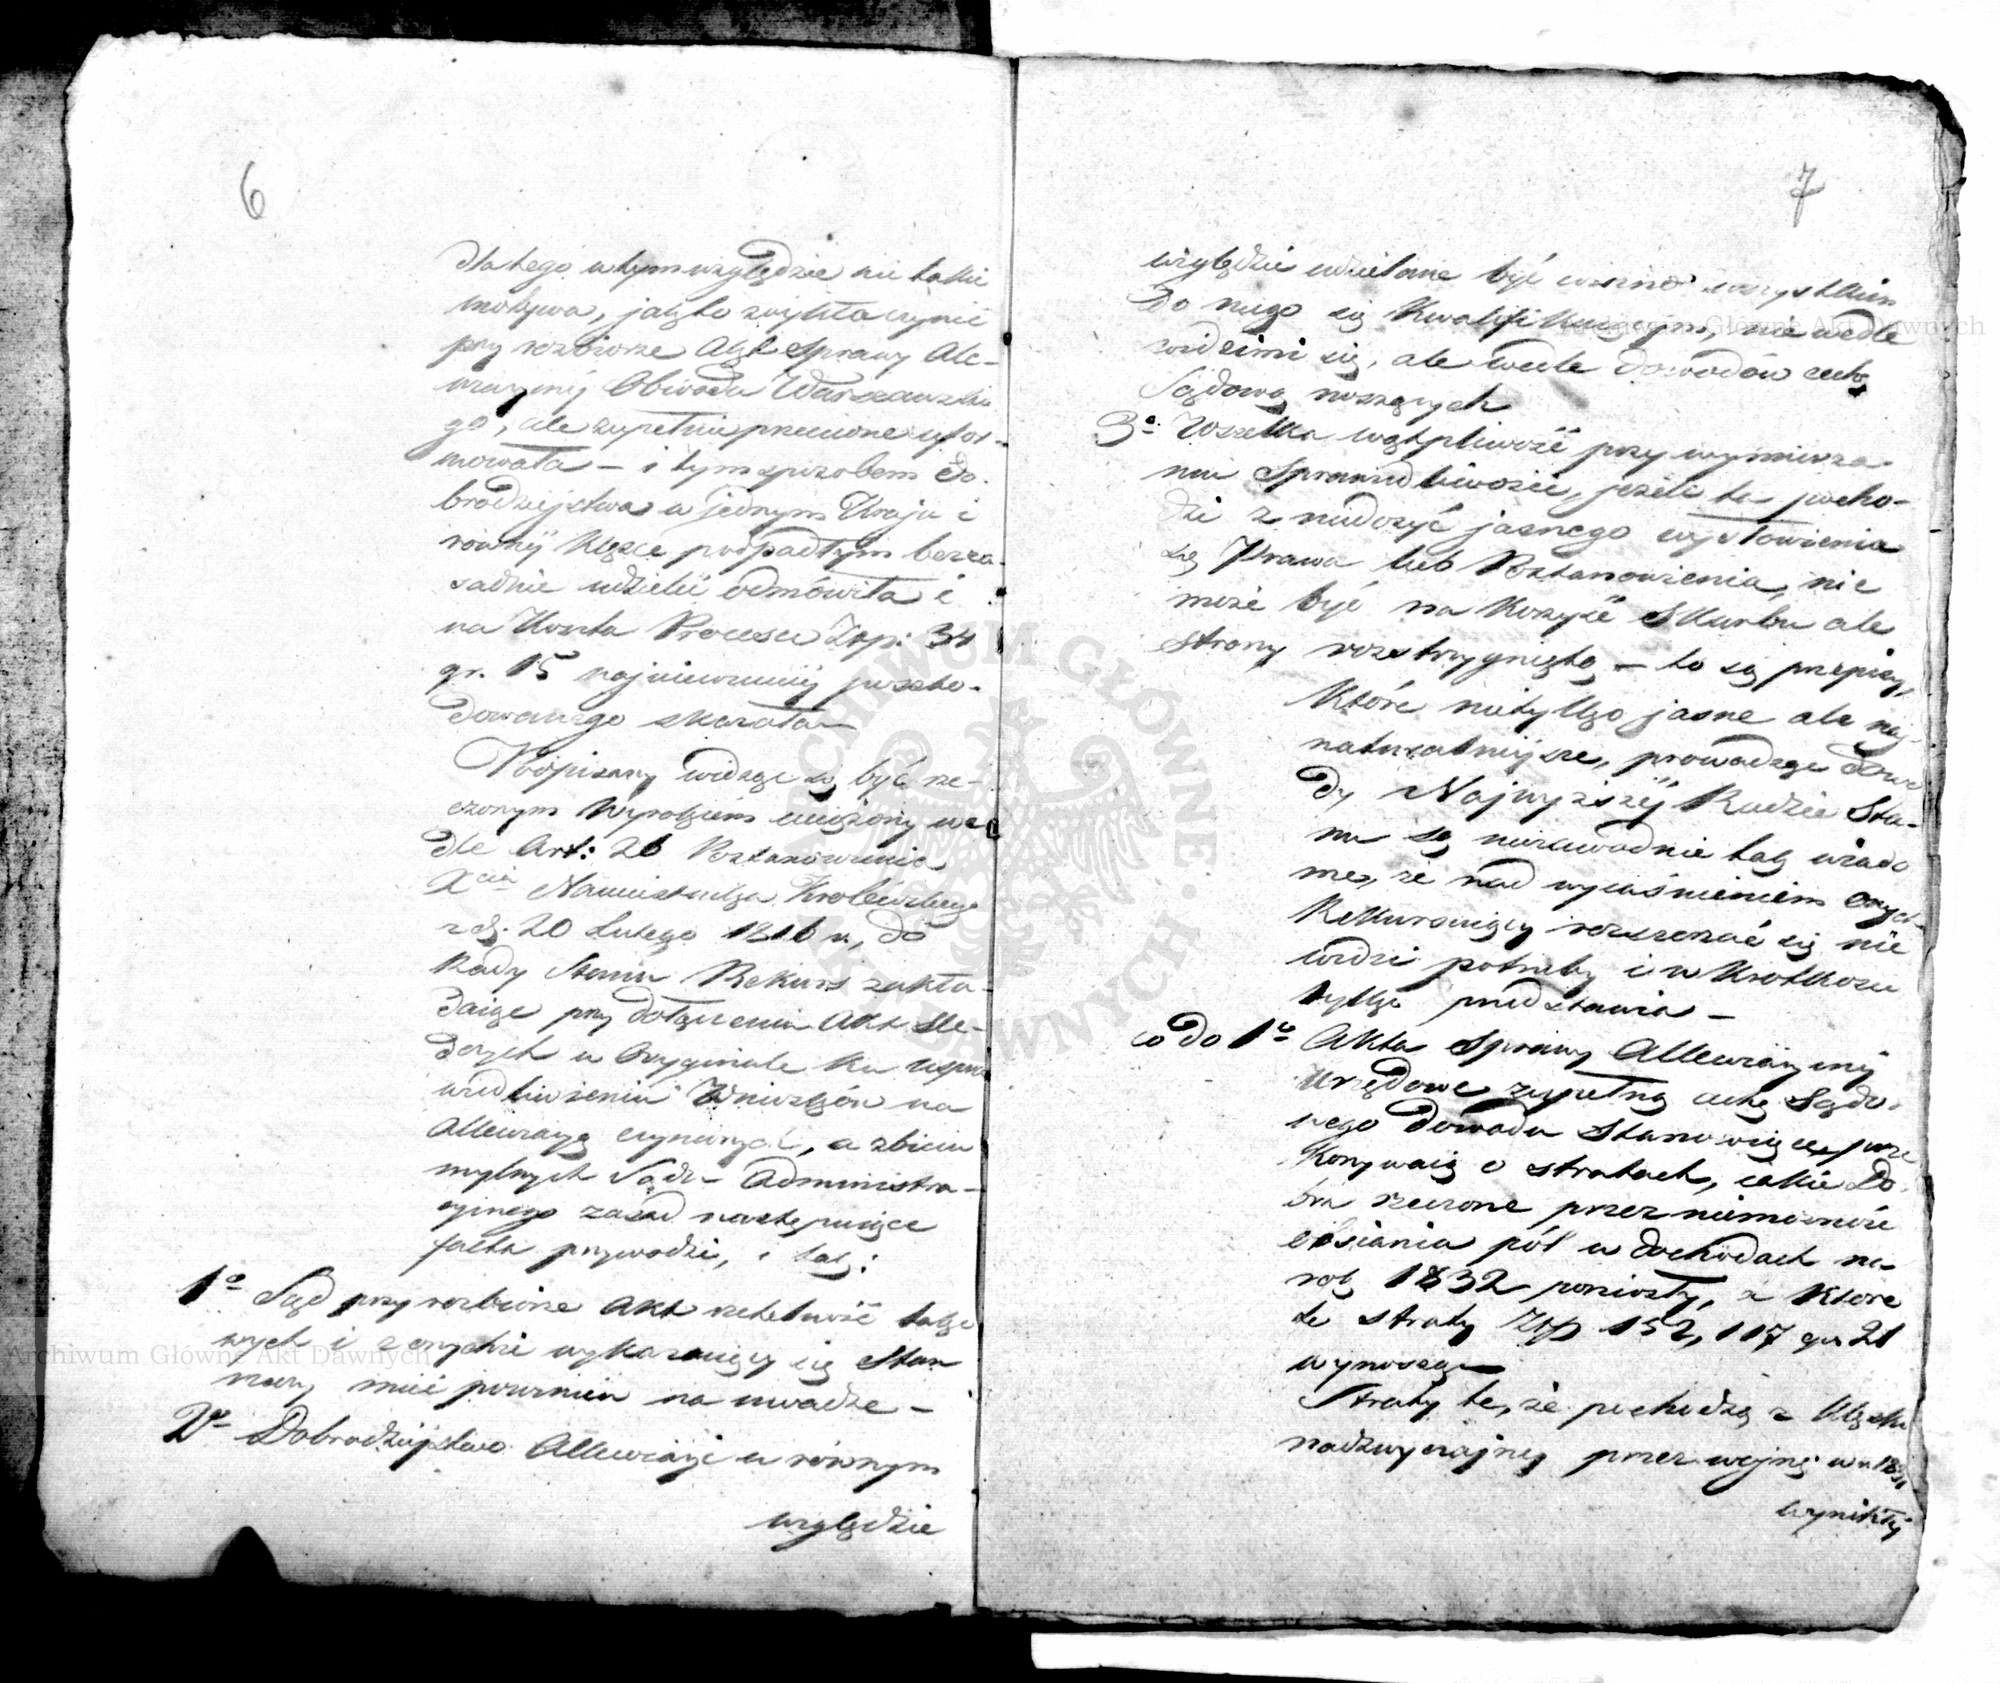 6
dla tego w tym względzie nie takie
motywa, jak to zwykła czynić
przy rozbiorze Akt Sprawy Ale-
wiacyinéj Obwodu Warszawskie
go, ale zupełnie przeciwne ufor-
mowała – i tym sposobem do-
brodziejstwa w jednym Kraju i
równéj Klęsce podpadłym bezza-
sadnie udzielić odmówiła i
na Koszta Processu Złp: 34
gr. 15 najniewinniéj poszko-
dowanego skazała
Podpisany widząc się być rze-
czonym Wyrokiem uciążony we-
dle Art: 26 Postanowienia
Xcia Namiestnika Królewskiego
z d. 20 Lutego 1816 r, do
Rady Stanu Rekurs zakła-
daiąc przy dołączeniu Akt Śle-
dczych w Oryginale ku uspra
wiedliwieniu Wniosków na
Allewiacyą czynionych, a zbiciu
mylnych Sądu Administra-
cyjnego zasad następuiące
fakta przywodzi, i tak:
1o Sąd przy rozbiorze Akt rzetelność tako
wych i z onychże wykazuiący się Stan
rzeczy mieć powinien na uwadze –
2o Dobrodziejstwo Allewiacyi w równym
względzie
7
względzie udzielane być winno wszystkim
do niego się kwalifikuiącym, nie wedle
widzimi się, ale wedle dowodów cechę
Sądową noszących
3o Wszelka wątpliwość przy wymierza-
niu Sprawiedliwości, jeżeli ta pocho-
dzi z niedosyć jasnego wysłowienia
się Prawa lub Postanowienia, nie
może być na Korzyść Skarbu ale
strony rozstrzygniętą – to są przepisy,
Które nietylko jasne ale naj-
naturalniejsze, prowadzące
dy Najwyższéj Radzie Sta-
nu są niezawodnie tak wiado
me, że nad wyiaśnieniem onych
Rekuruiący rozszerzać się nie
widzi potrzeby i w Krotkości
tylko przedstawia –
co do 1o Akta Sprawy Allewiacyinéj
Urzędowe zupełną cechę Sądo-
wego dowodu Stanowiące, prze
konywaią o stratach, iakie Do-
bra rzeczone przez niemożność
obsiania pól w dochodach na
rok 1832 poniosły, a Które
te straty Złp 152,117 gr 21
wynoszą
Straty te, że pochodzą z Klęski
nadzwyczajnéj przez wojnę w r. 1831
wynikłéj